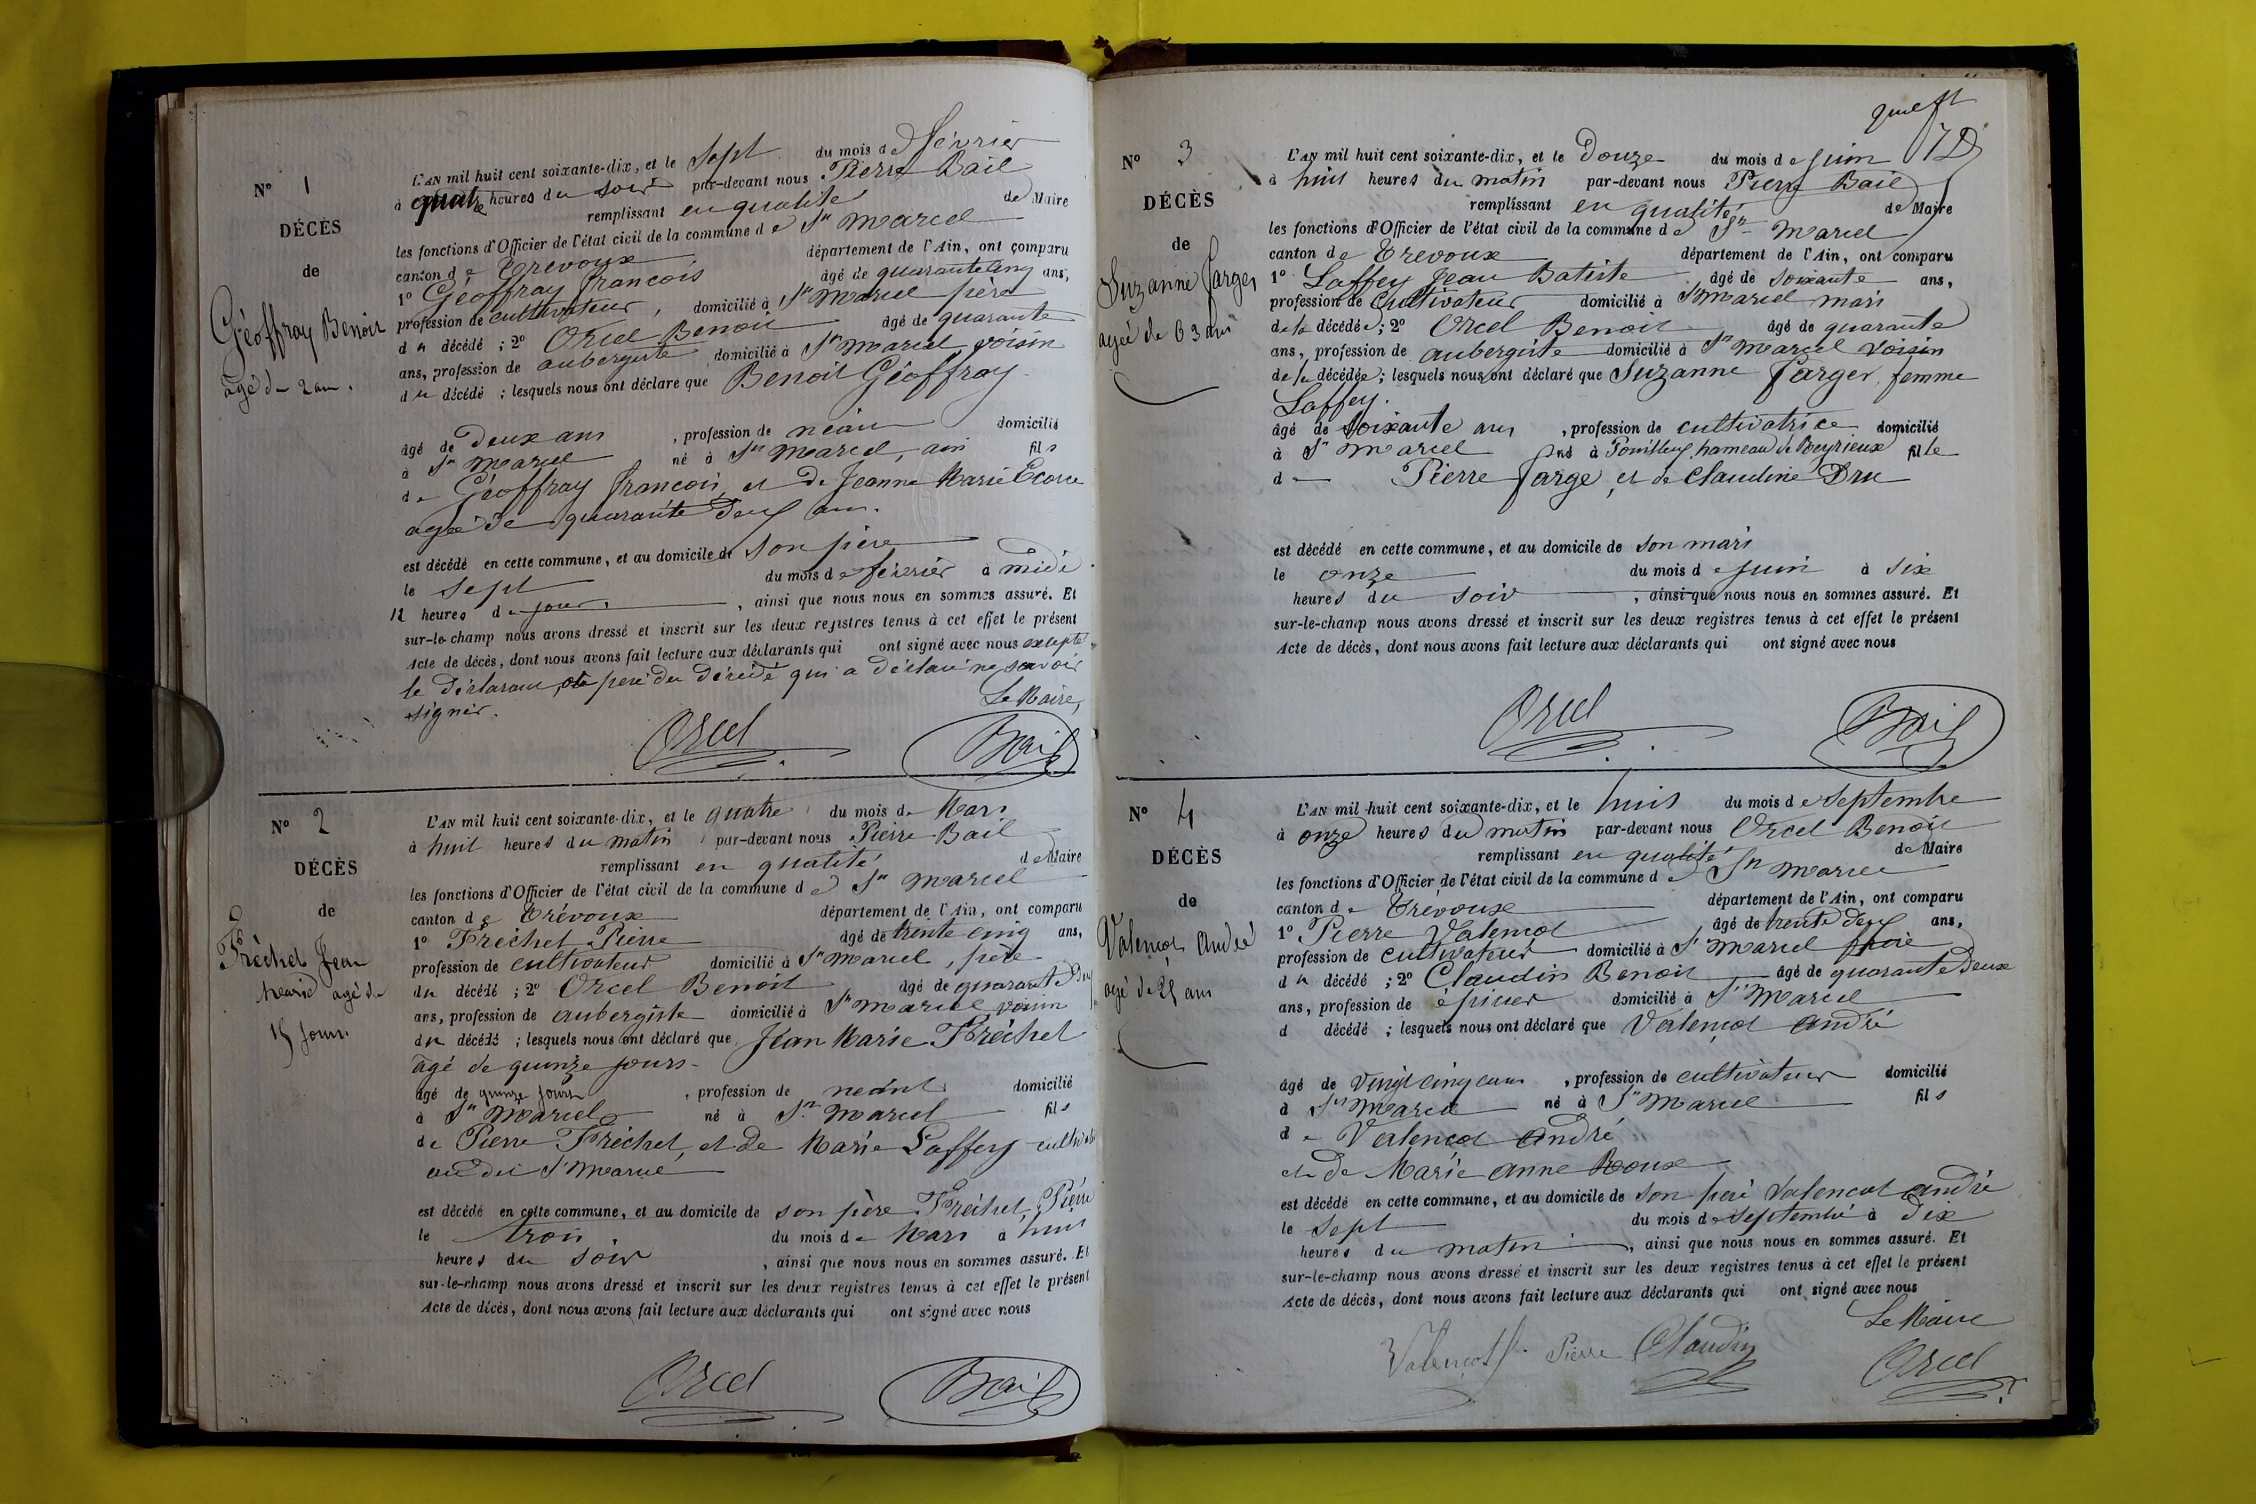 N° 1
DÉCÈS
de
Géoffray Benoit
agé de 2 ans.
L'AN mil huit cent soixante-dix, et le sept du mois de février
à quatre heures du soir par-devant nous Pierre Bail
remplissant en qualité de Maire
les fonctions d'Officier de l'état civil de la commune de St Marcel
canton de Trevoux département de l'Ain, ont comparu
1° Géoffray François âgé de quarante cinq ans,
profession de cultivateur, domicilié à St Marcel père
du décédé ; 2° Orcel Benoit âgé de quarante
ans, profession de aubergiste domicilié à St Marcel voisin
du décédé ; lesquels nous ont déclaré que Benoit Géoffray
âgé de deux ans, profession de néant domicilié
à St Marcel né à St Marcel, ain fils
de Géoffray François, et de Jeanne Marie
agée de quarante deux ans.
est décédé en cette commune, et au domicile de son père
le sept du mois de février à midi
12 heures du jour, ainsi que nous nous en sommes assuré. Et
sur-le-champ nous avons dressé et inscrit sur les deux registres tenus à cet effet le présent
Acte de décès, dont nous avons fait lecture aux déclarants qui ont signé avec nous excepté
le déclarant, père du décédé qui a déclaré ne savoir
signer.
Le Maire,
Orcel Bail
N° 2
DÉCÈS
de
Fréchet Jean
Marie agé de
15 jours.
L'AN mil huit cent soixante-dix, et le quatre du mois de Mars
à huit heures du matin par-devant nous Pierre Bail
remplissant en qualité de Maire
les fonctions d'Officier de l'état civil de la commune de St Marcel
canton de Trévoux département de l'Ain, ont comparu
1° Fréchet Pierre âgé de trente cinq ans,
profession de cultivateur domicilié à St Marcel, père
du décédé ; 2° Orcel Benoit âgé de quarante
ans, profession de aubergiste domicilié à St Marcel voisin
du décédé ; lesquels nous ont déclaré que Jean Marie Fréchet
agé de quinze jours
âgé de quinze jours, profession de néant domicilié
à St Marcel né à St Marcel fils
de Pierre Fréchet, et de Marie Laffey
au dit St Marcel
est décédé en cette commune, et au domicile de son père Fréchet Pierre
le trois du mois de Mars à huit
heures du soir, ainsi que nous nous en sommes assuré. Et
sur-le-champ nous avons dressé et inscrit sur les deux registres tenus à cet effet le présent
Acte de décès, dont nous avons fait lecture aux déclarants qui ont signé avec nous
Orcel Bail
N° 3
DÉCÈS
de
Suzanne Farger
agée de 63 ans
L'AN mil huit cent soixante-dix, et le douze du mois de juin
à huit heures du matin par-devant nous Pierre Bail
remplissant en qualité de Maire
les fonctions d'Officier de l'état civil de la commune de St Marcel
canton de Trevoux département de l'Ain, ont comparu
1° Laffey Jean Batiste âgé de soixante ans,
profession de cultivateur domicilié à St Marcel mari
de la décédée ; 2° Orcel Benoit âgé de quarante
ans, profession de aubergiste domicilié à St Marcel voisin
de la décédée ; lesquels nous ont déclaré que Suzanne Farger, femme
Laffey.
âgé de soixante ans, profession de cultivatrice domicilié
à St Marcel né à Pouilleux, hameau de Reyrieux fille
de Pierre Farge, et de Claudine Dru
est décédé en cette commune, et au domicile de son mari
le onze du mois de juin à six
heures du soir, ainsi que nous nous en sommes assuré. Et
sur-le-champ nous avons dressé et inscrit sur les deux registres tenus à cet effet le présent
Acte de décès, dont nous avons fait lecture aux déclarants qui ont signé avec nous
Orcel Bail
N° 4
DÉCÈS
de
Valençot André
agé de 25 ans
L'AN mil huit cent soixante-dix, et le huit du mois de septembre
à onze heures du matin par-devant nous Orcel Benoit
remplissant en qualité de Maire
les fonctions d'Officier de l'état civil de la commune de St Marcel
canton de Trévoux département de l'Ain, ont comparu
1° Pierre Valençot, âgé de trente deux ans,
profession de cultivateur domicilié à St Marcel
du décédé ; 2° Claudin Benoit âgé de quarante deux
ans, profession de épicier domicilié à St Marcel
d décédé ; lesquels nous ont déclaré que Valençot André
âgé de vingt cinq ans, profession de cultivateur domicilié
à St Marcel né à St Marcel fils
de Valençot André
et de Marie Anne Roux
est décédé en cette commune, et au domicile de son père Valençot André
le sept du mois de septembre à dix
heures du matin, ainsi que nous nous en sommes assuré. Et
sur-le-champ nous avons dressé et inscrit sur les deux registres tenus à cet effet le présent
Acte de décès, dont nous avons fait lecture aux déclarants qui ont signé avec nous
Le Maire
Valençot Pierre Claudin Orcel